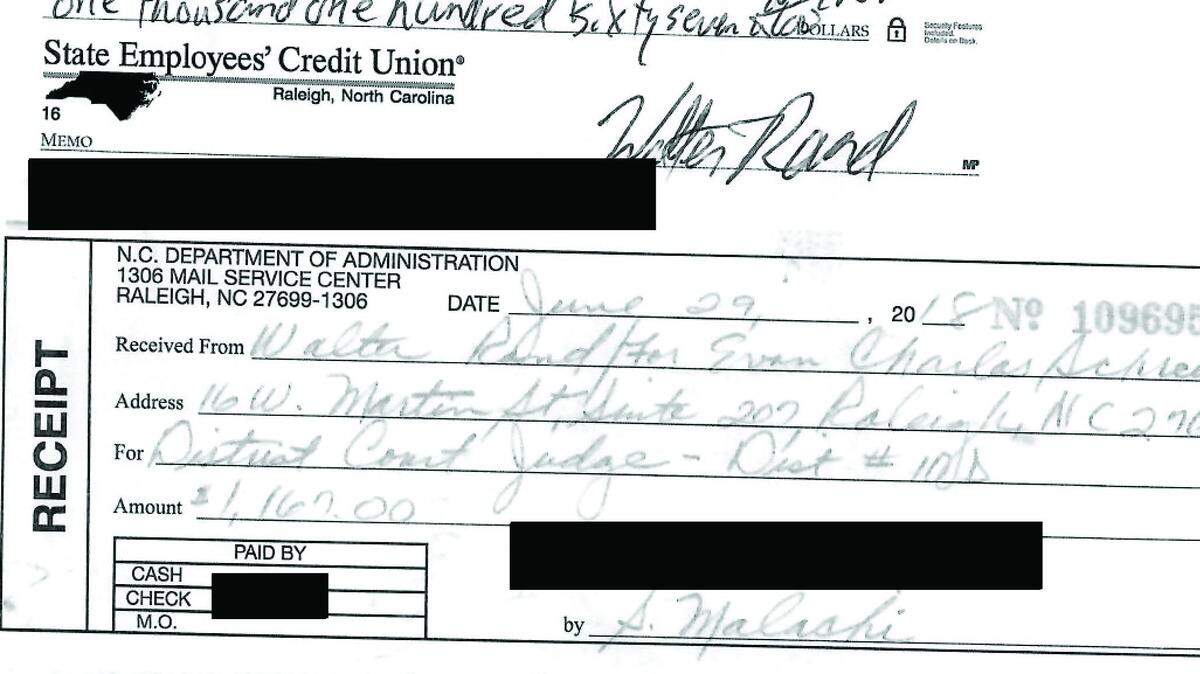 one thousand one hundred sixty seven DOLLARS Security Features Included. Details on Back.
State Employees' Credit Union®
Raleigh, North Carolina
16
MEMO Walter Rand MP
N.C. DEPARTMENT OF ADMINISTRATION
1306 MAIL SERVICE CENTER
RALEIGH, NC 27699-1306 DATE June 29, , 20 18 Nº 109695
RECEIPT
Received From Walter Rand/for Evan Charles
Address 16 W. Martin St, Suite 207, Raleigh, NC 276
For District Court Judge - Dist # 10D
Amount $1,167.00
PAID BY
CASH
CHECK
M.O.
by S. Malashi